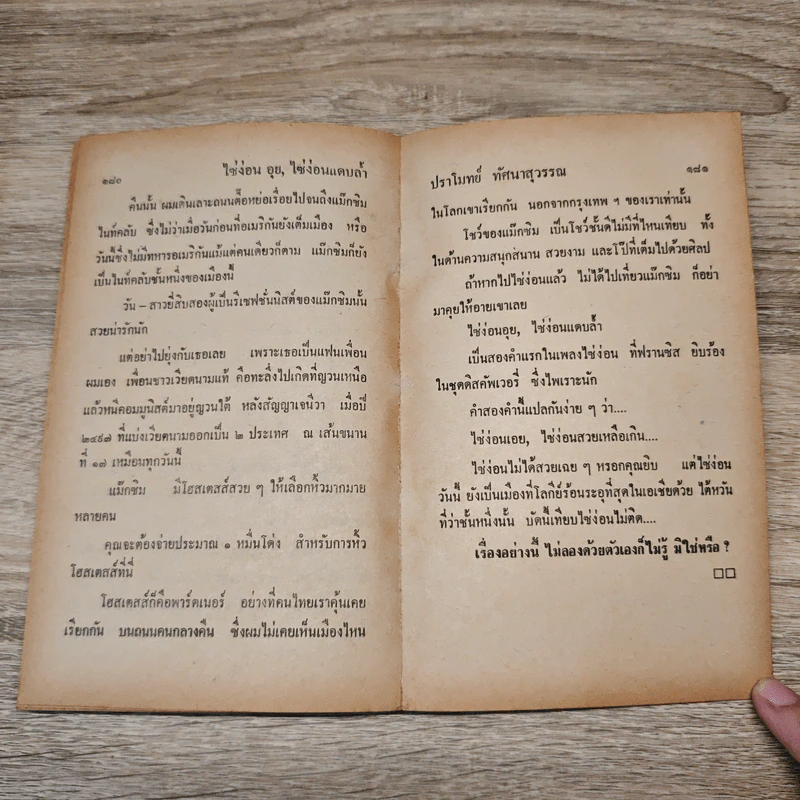 ๑๘๐
ไซ่ง่อน อุย, ไซ่ง่อนแดบล้ำ
คืนนั้น ผมเดินเลาะถนนตือหย่อเรื่อยไปจนถึงแม๊กซิม
ไนท์คลับ ซึ่งไม่ว่าเมื่อวันก่อนที่อเมริกันยังเต็มเมือง หรือ
วันนี้ซึ่งไม่มีทหารอเมริกันแม้แต่คนเดียวก็ตาม แม๊กซิมก็ยัง
เป็นไนท์คลับชั้นหนึ่งของเมืองนี้
วัน – สาวยี่สิบสองผู้เป็นรีเซฟชั่นนิสต์ของแม๊กซิมนั้น
สวยน่ารักนัก
แต่อย่าไปยุ่งกับเธอเลย เพราะเธอเป็นแฟนเพื่อน
ผมเอง เพื่อนชาวเวียดนามแท้ คือทะลึ่งไปเกิดที่ญวนเหนือ
แล้วหนีคอมมูนิสต์มาอยู่ญวนใต้ หลังสัญญาเจนีวา เมื่อปี
๒๔๙๗ ที่แบ่งเวียดนามออกเป็น ๒ ประเทศ ณ เส้นขนาน
ที่ ๑๗ เหมือนทุกวันนี้
แม๊กซิม มีโฮสเตสส์สวย ๆ ให้เลือกหิ้วมากมาย
หลายคน
คุณจะต้องจ่ายประมาณ ๑ หมื่นโด่ง สำหรับการหิ้ว
โฮสเตสส์ที่นี่
โฮสเตสส์ก็คือพาร์ตเนอร์ อย่างที่คนไทยเราคุ้นเคย
เรียกกัน บนถนนคนกลางคืน ซึ่งผมไม่เคยเห็นเมืองไหน
ปราโมทย์ ทัศนาสุวรรณ
๑๘๑
ในโลกเขาเรียกกัน นอกจากกรุงเทพ ฯ ของเราเท่านั้น
โชว์ของแม๊กซิม เป็นโชว์ชั้นดีไม่มีที่ไหนเทียบ ทั้ง
ในด้านความสนุกสนาน สวยงาม และโป๊ที่เต็มไปด้วยศิลป
ถ้าหากไปไซ่ง่อนแล้ว ไม่ได้ไปเที่ยวแม๊กซิม ก็อย่า
มาคุยให้อายเขาเลย
ไซ่ง่อนอุย, ไซ่ง่อนแดบล้ำ
เป็นสองคำแรกในเพลงไซ่ง่อน ที่ฟรานซิส ยิบร้อง
ในชุดดิสคัพเวอรี่ ซึ่งไพเราะนัก
คำสองคำนี้แปลกันง่าย ๆ ว่า....
ไซ่ง่อนเอย, ไซ่ง่อนสวยเหลือเกิน....
ไซ่ง่อนไม่ได้สวยเฉย ๆ หรอกคุณยิบ แต่ไซ่ง่อน
วันนี้ ยังเป็นเมืองที่โลกีย์ร้อนระอุที่สุดในเอเซียด้วย ไต้หวัน
ที่ว่าชั้นหนึ่งนั้น บัดนี้เทียบไซ่ง่อนไม่ติด....
เรื่องอย่างนี้ ไม่ลองด้วยตัวเองก็ไม่รู้ มิใช่หรือ ?